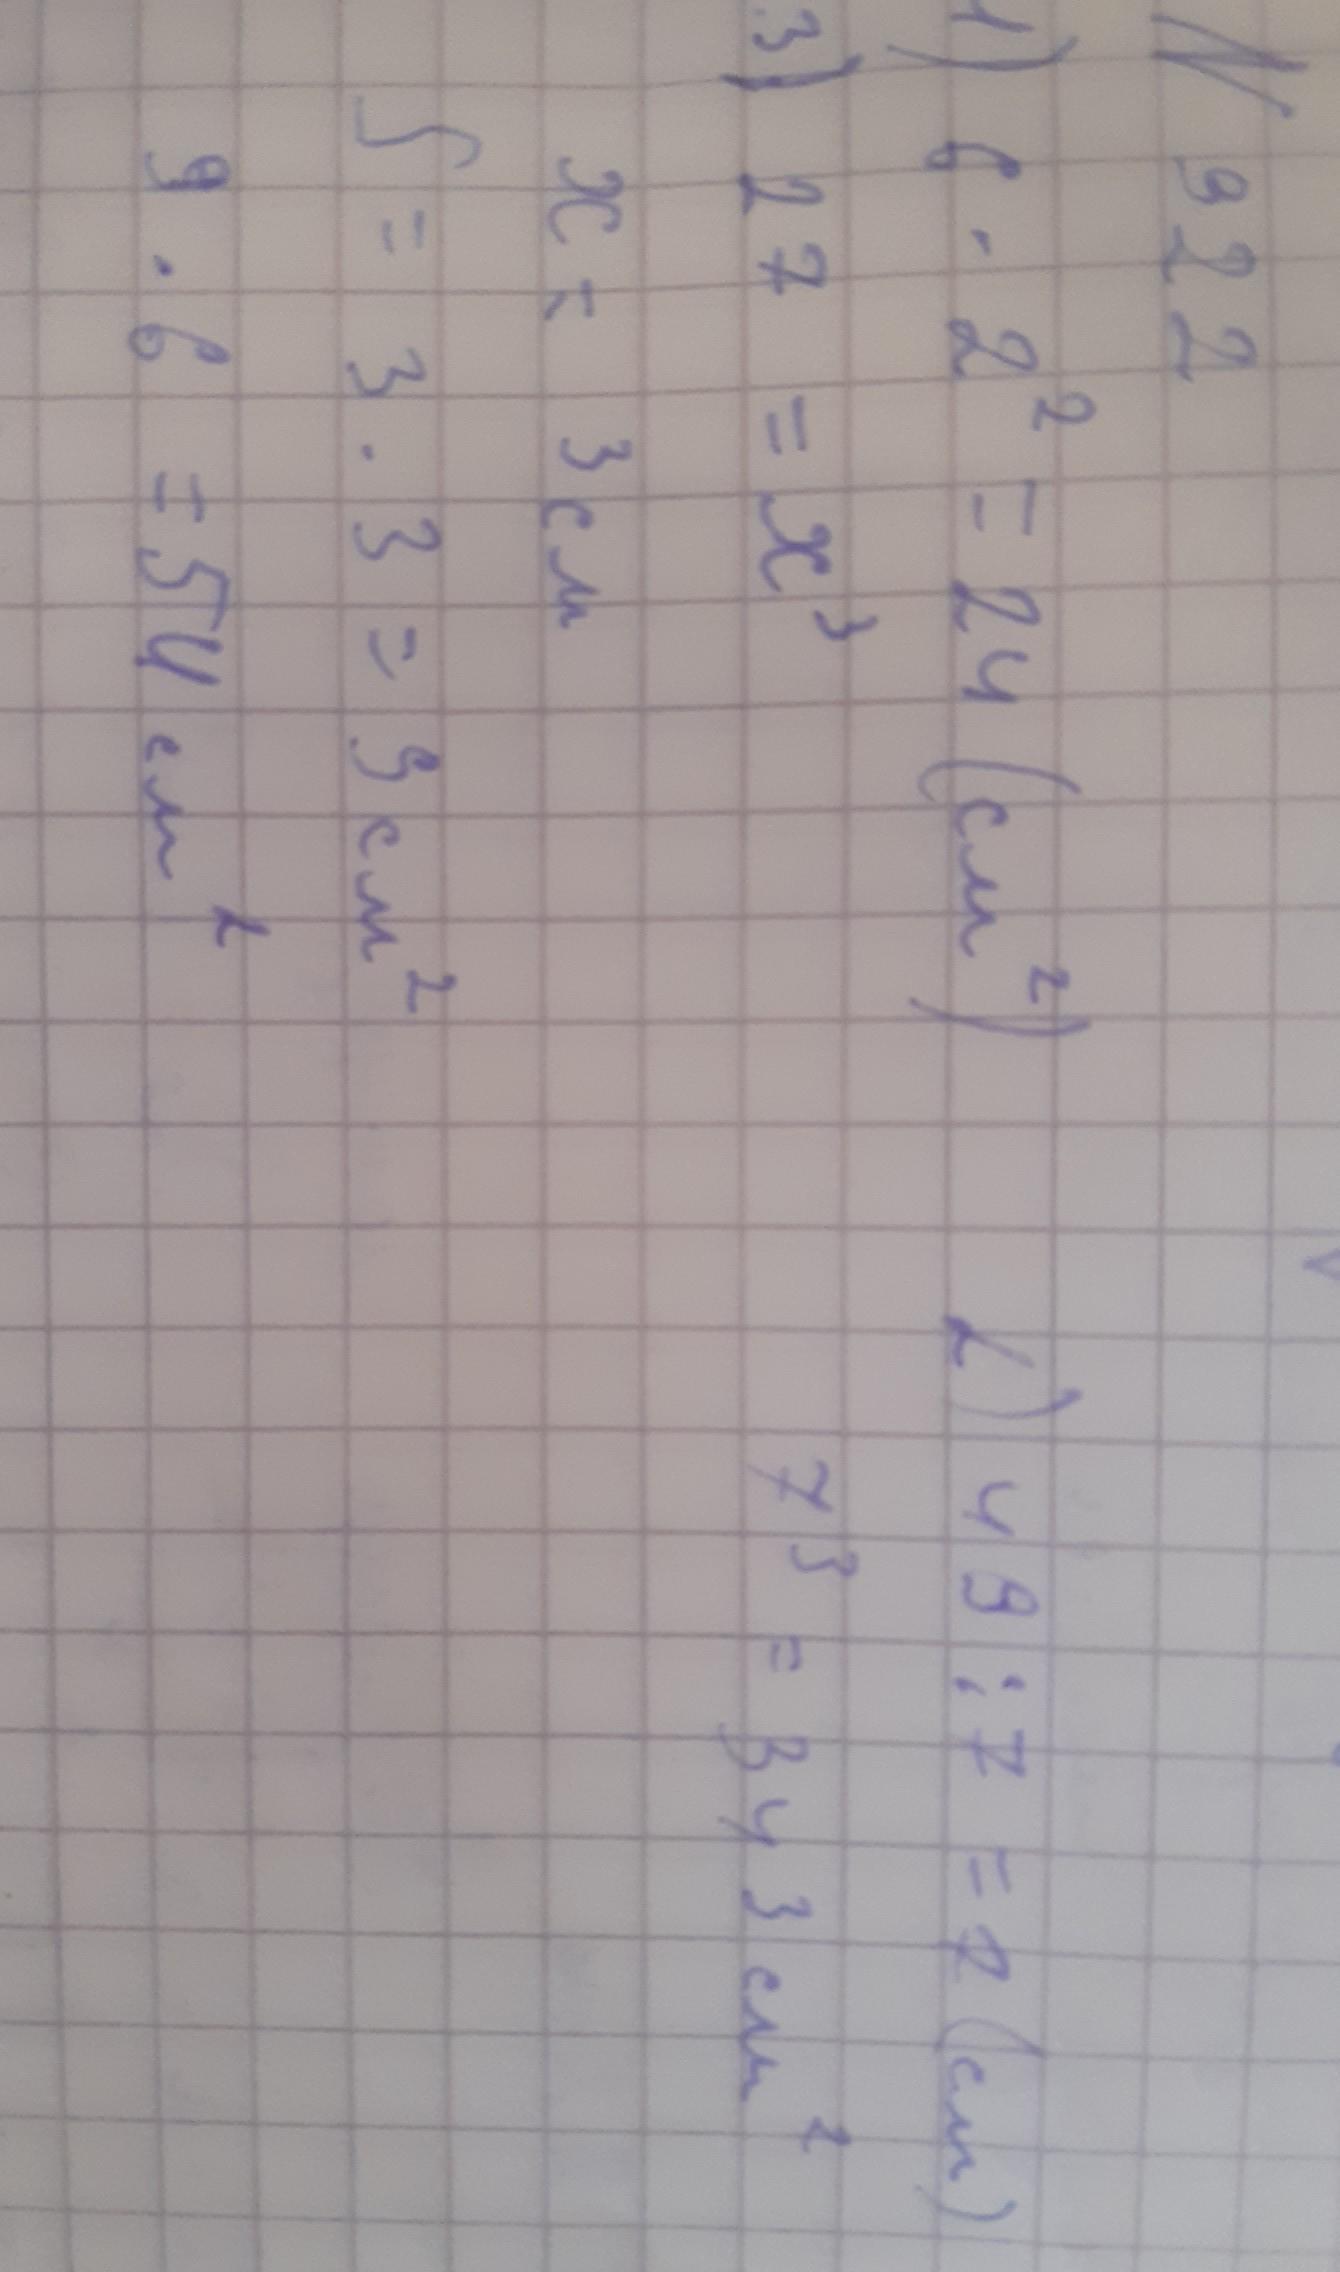 № 922
1) 6 · 2² = 24 (см²)
2) 49 : 7 = 7 (см)
7³ = 343 см²
3) 27 = x³
x = 3 см
S = 3 · 3 = 9 см²
9 · 6 = 54 см²